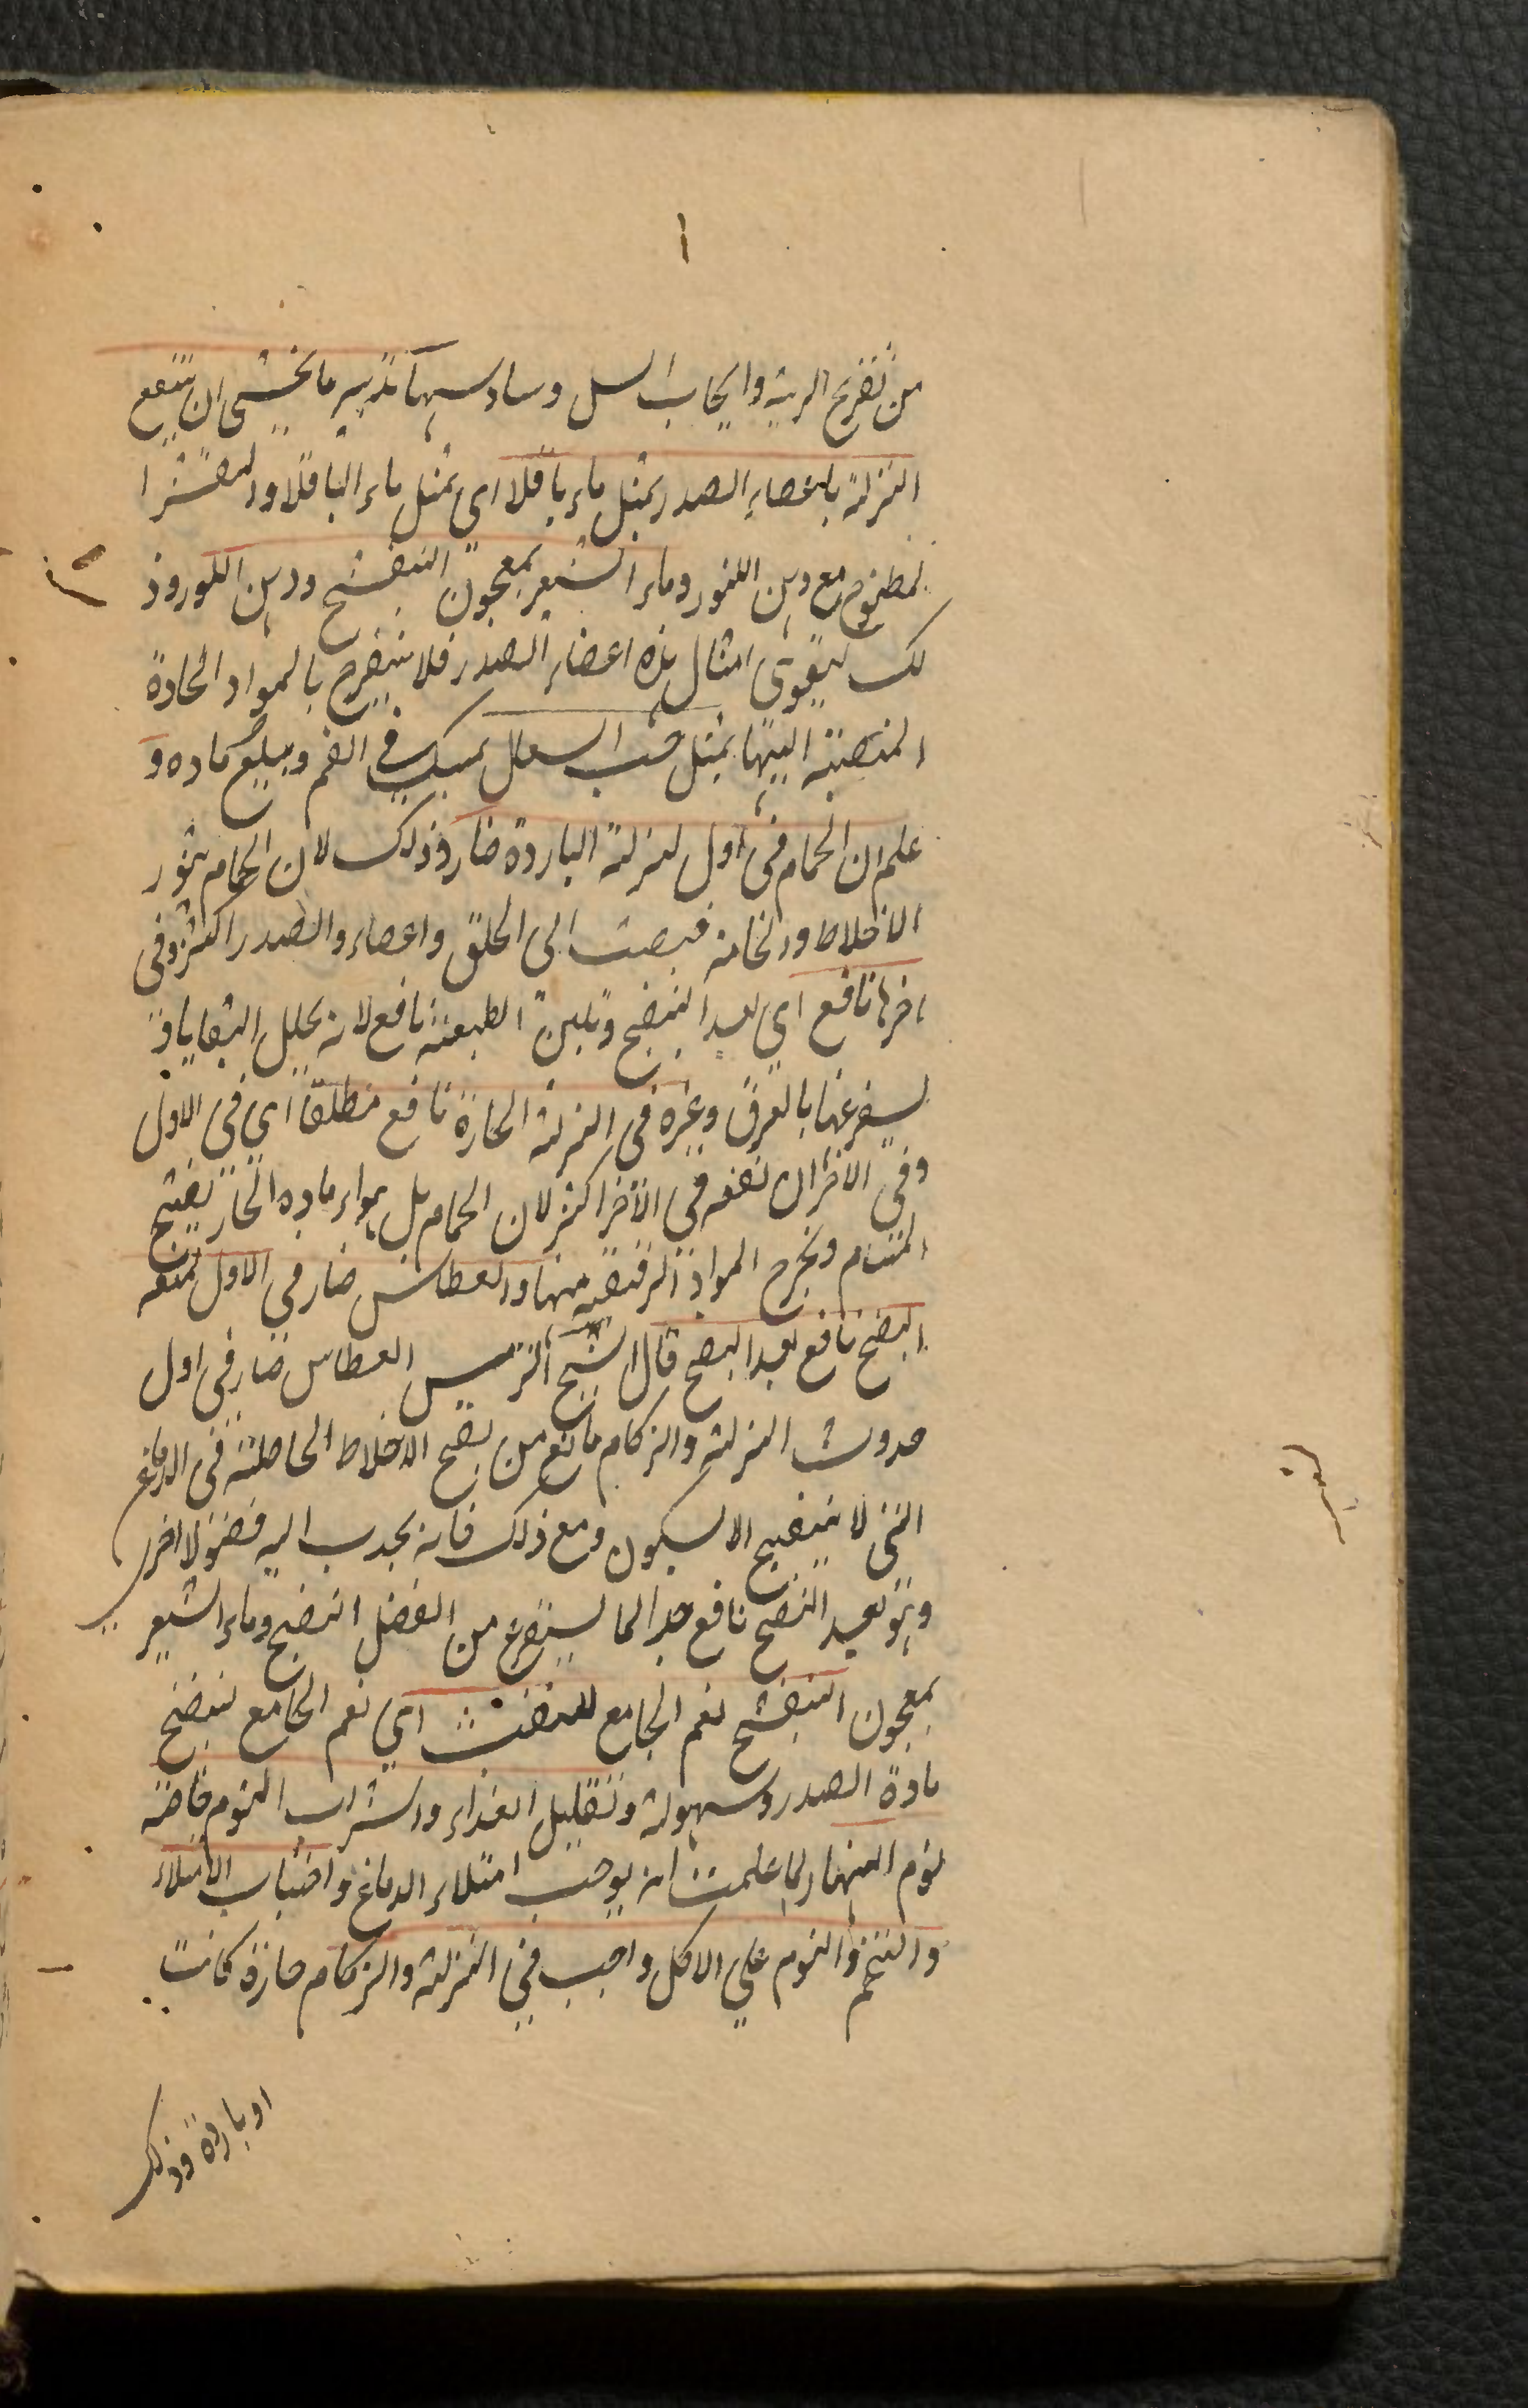 ١
من تقريح الرية وايجاب السل وسادسها تدبير ما يخشى ان يتبع
النزلة باعضاء الصدر بمثل ماء باقلا اى بمثل ماء الباقلا والمقشرا
لمطبوخ مع دهن اللوز وماء الشعير بمعجون البنفسج ودهن اللوز وذ
لك ليقوى امثال هذه اعضاء الصدر فلا يتقرح بالمواد الحادة
المنصبة اليها بمثل حب السعال يمسك فى الفم ويبلع ماده و
علم ان الحمام فى اول لنزلة الباردة ضار وذلك لان الحمام يثور
الاخلاط والخامه فيصب الى الحلق واعضاء والصدر اكثر وفى
اخرها نافع اي بعد النضج وتلين الطبيعة نافع لانه يحلل البقايا و
يستفرغها بالعرق وغيره فى النزلة الحارة نافع مطلقا اي فى الاول
وفى الاخر ان نفعه فى الآخر اكثر لان الحمام بل بهواء ماده الحار يفتح
المسام ويخرج المواد الرقيقة منها والعطاس ضار فى الاول لمنعه
النضج نافع بعد النضج قال الشيخ الرئيس العطاس ضار فى اول
حدوث النزلة والزكام مانع من نضج الاخلاط الحاصلة فى الدماغ
التى لا ينضج الا بسكون ومع ذلك فانه يجذب اليه فضولا اخر
وهو بعد النضج نافع جدا لما يستفرغ من الفضل النضج وماء الشعير
بمعجون البنفسج نعم الجامع للنفث اي نعم الجامع لنضج
مادة الصدر وسهولة وتقليل الغذاء والشراب النوم خاصة
نوم النهار لما علمت انه يوجب امتلاء الدماغ واجتناب الامتلاء
والتخم والنوم علي الاكل واجب في النزلة والزكام حارة كانت
او باردة وذلك